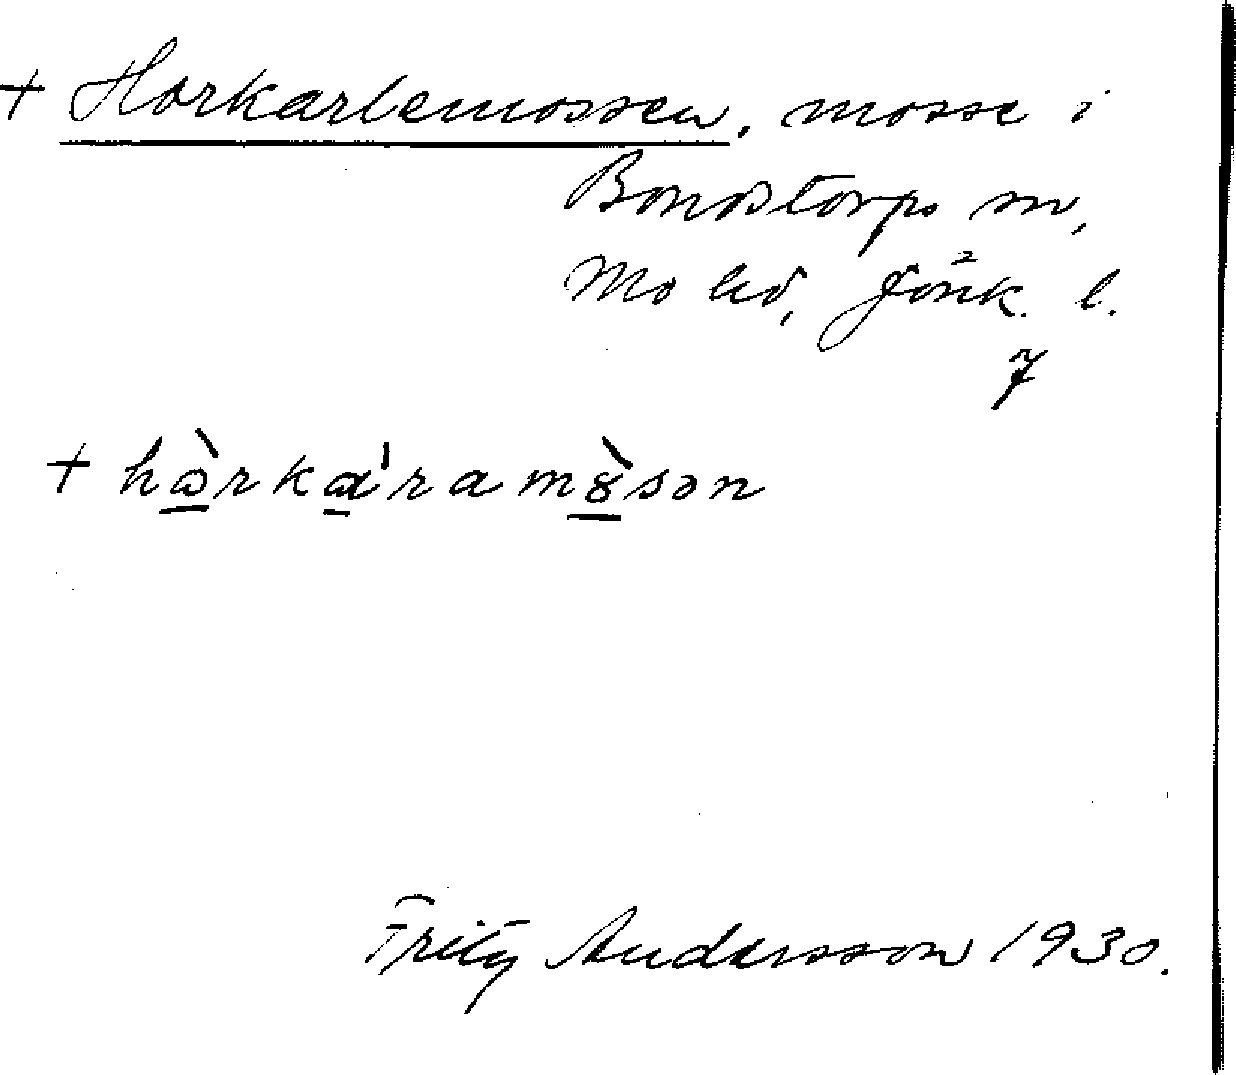 + Horkarlemossen, mosse i
Bondstorps sn,
Mo hd, Jönk. l.
7
+ hɷ̀rka'ramȣ̀sən
Fritz Andersson 1930.